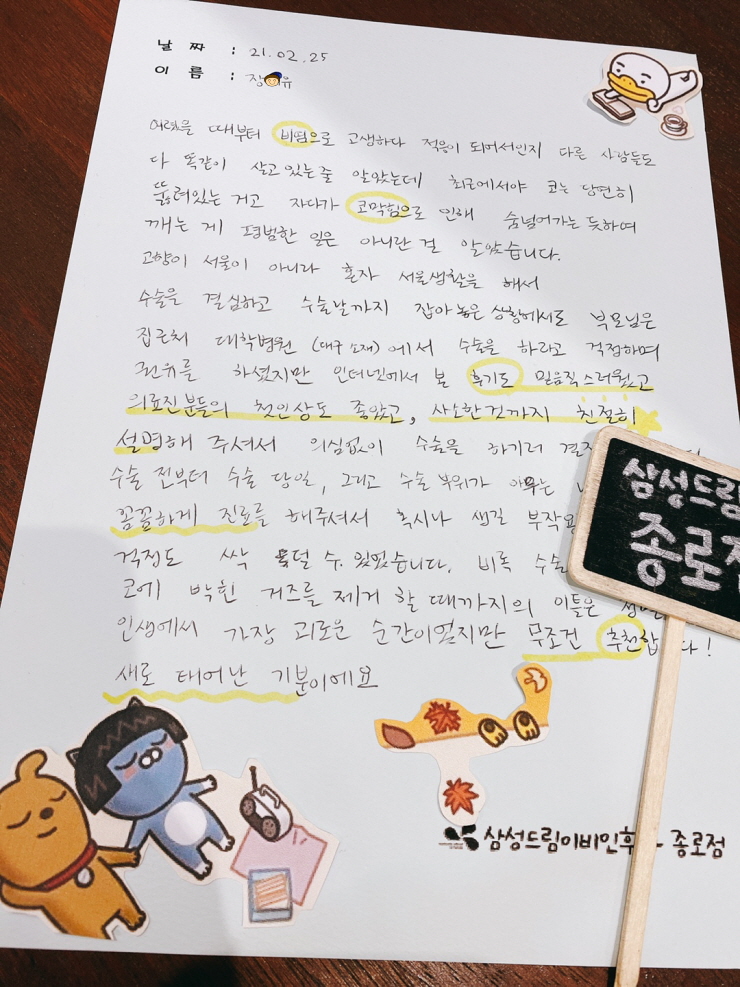 날 짜 : 21.02.25
이 름 : 장 유
어렸을 때부터 비염으로 고생하다 적응이 되어서인지 다른 사람들도
다 똑같이 살고있는줄 알았는데 최근에서야 코는 당연히
뚫려있는 거고 자다가 코막힘으로 인해 숨넘어가는 듯하여
깨는 게 평범한 일은 아니란 걸 알았습니다.
고향이 서울이 아니라 혼자 서울생활을 해서
수술을 결심하고 수술날까지 잡아놓은 상황에서도 부모님은
집근처 대학병원 (대구 소재)에서 수술을 하라고 걱정하며
권유를 하셨지만 인터넷에서 본 후기도 믿음직스러웠고
의료진분들의 첫인상도 좋았고, 사소한것까지 친절히
설명해 주셔서 의심없이 수술을 하기로
수술 전부터 수술 당일, 그리고 수술 부위가 아무는
꼼꼼하게 진료를 해주셔서 혹시나 생길
걱정도 싹 덜 수 있었습니다. 비록 수술
코에 박힌 거즈를 제거 할 때까지의 이틀은
인생에서 가장 괴로운 순간이었지만 무조건 추천합니다!
새로 태어난 기분이에요
삼성드림
종로점
삼성드림이비인후과 종로점